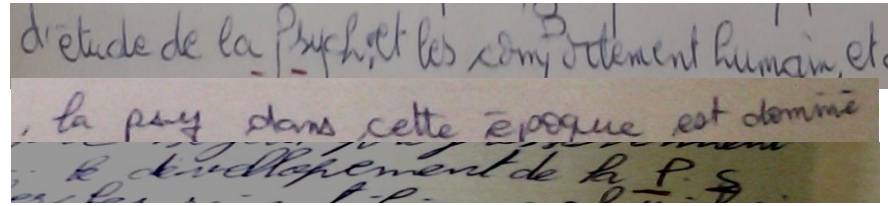 d'étude de la Psych, et les comportement humain, et
, la psy dans cette époque est dominé
le dévellopement de la P. S